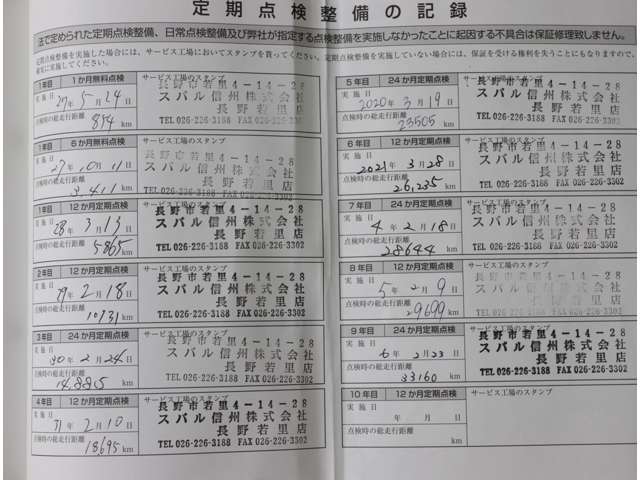 定期点検整備の記録
法で定められた定期点検整備、日常点検整備及び弊社が指定する点検整備を実施しなかったことに起因する不具合は保証修理致しません。
定期点検整備を実施した場合には、サービス工場においてスタンプを貰ってください。定期点検整備を実施していない場合には、保証を受ける権利を失うこともありますので、
確実に実施してください。
1年目 1か月無料点検 サービス工場のスタンプ
実施日
27年5月24日
点検時の総走行距離
854 km
長野市若里4-14-28
スバル信州株式会社
長野若里店
TEL 026-226-3188 FAX 026-226-3302
1年目 6か月無料点検 サービス工場のスタンプ
実施日
27年10月11日
点検時の総走行距離
3,411 km
長野市若里4-14-28
スバル信州株式会社
長野若里店
TEL 026-226-3188 FAX 026-226-3302
1年目 12か月定期点検 サービス工場のスタンプ
実施日
28年3月13日
点検時の総走行距離
5865 km
長野市若里4-14-28
スバル信州株式会社
長野若里店
TEL 026-226-3188 FAX 026-226-3302
2年目 12か月定期点検 サービス工場のスタンプ
実施日
29年2月18日
点検時の総走行距離
10131 km
長野市若里4-14-28
スバル信州株式会社
長野若里店
TEL 026-226-3188 FAX 026-226-3302
3年目 24か月定期点検 サービス工場のスタンプ
実施日
30年2月24日
点検時の総走行距離
14,885 km
長野市若里4-14-28
スバル信州株式会社
長野若里店
TEL 026-226-3188 FAX 026-226-3302
4年目 12か月定期点検 サービス工場のスタンプ
実施日
31年2月10日
点検時の総走行距離
18695 km
長野市若里4-14-28
スバル信州株式会社
長野若里店
TEL 026-226-3188 FAX 026-226-3302
5年目 24か月定期点検 サービス工場のスタンプ
実施日
2020年3月19日
点検時の総走行距離
23505 km
長野市若里4-14-28
スバル信州株式会社
長野若里店
TEL 026-226-3188 FAX 026-226-3302
6年目 12か月定期点検 サービス工場のスタンプ
実施日
2021年3月28日
点検時の総走行距離
26,235 km
長野市若里4-14-28
スバル信州株式会社
長野若里店
TEL 026-226-3188 FAX 026-226-3302
7年目 24か月定期点検 サービス工場のスタンプ
実施日
4年2月18日
点検時の総走行距離
28644 km
長野市若里4-14-28
スバル信州株式会社
長野若里店
TEL 026-226-3188 FAX 026-226-3302
8年目 12か月定期点検 サービス工場のスタンプ
実施日
5年2月9日
点検時の総走行距離
29699 km
長野市若里4-14-28
スバル信州株式会社
長野若里店
TEL 026-226-3188 FAX 026-226-3302
9年目 24か月定期点検 サービス工場のスタンプ
実施日
6年2月23日
点検時の総走行距離
33160 km
長野市若里4-14-28
スバル信州株式会社
長野若里店
TEL 026-226-3188 FAX 026-226-3302
10年目 12か月定期点検 サービス工場のスタンプ
実施日
年 月 日
点検時の総走行距離
km